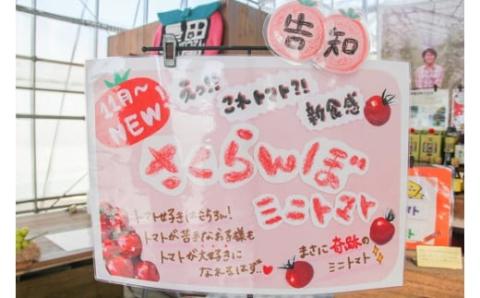 告知
11月〜
NEW!
えっ!?
これトマト?!
新食感
さくらんぼ
ミニトマト
トマト好きはもちろん!
トマトが苦手なお子様も
トマトが大好きに
なれるはず…
まさに奇跡の
ミニトマト